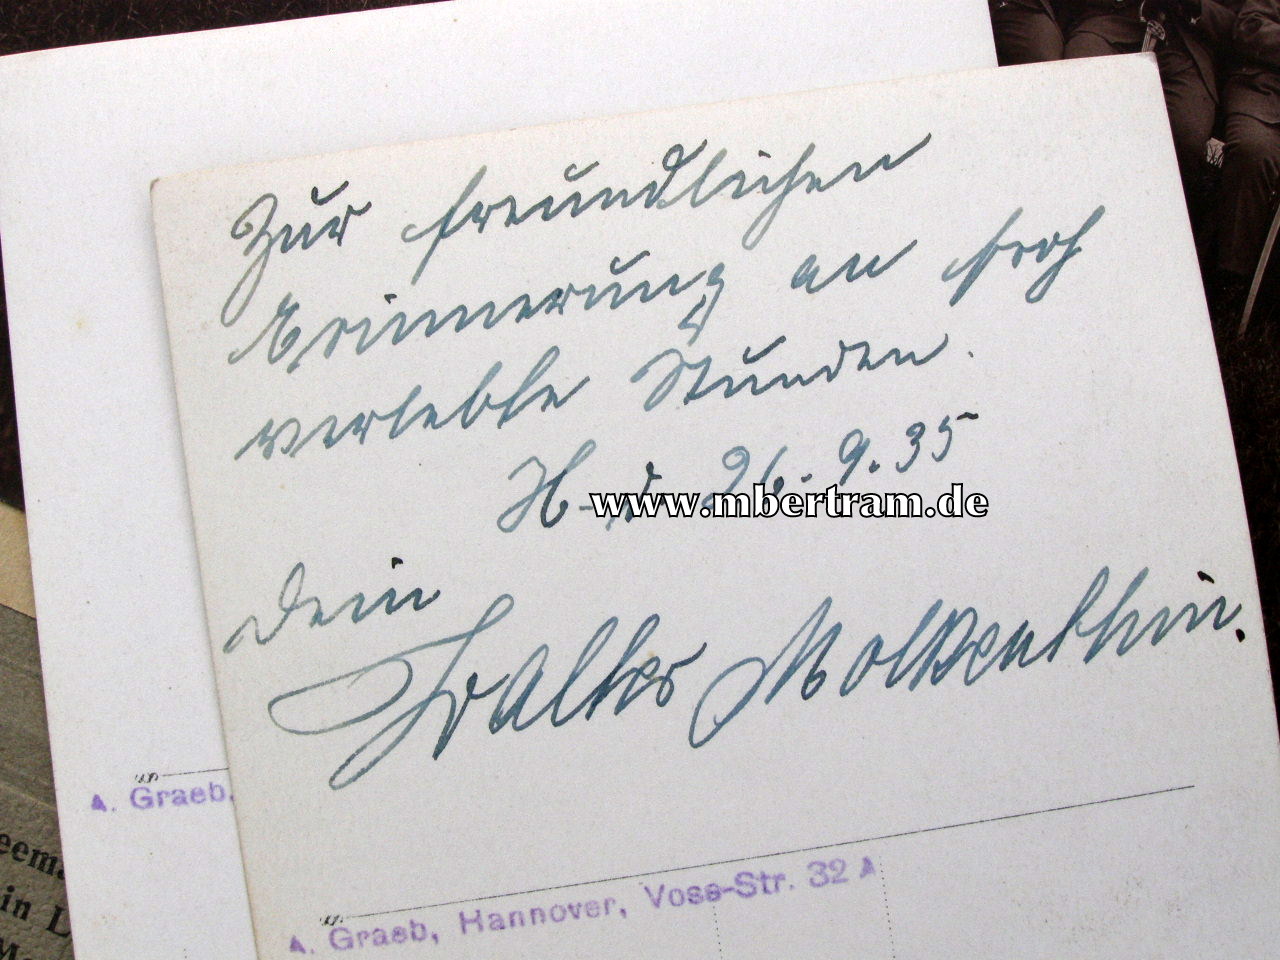 Zur freundlichen
Erinnerung an froh
verlebte Stunden.
26.9.35
www.mbertram.de
Dein
Walter Molkenthin.
A. Graeb,
A. Graeb, Hannover, Voss-Str. 32 A
in